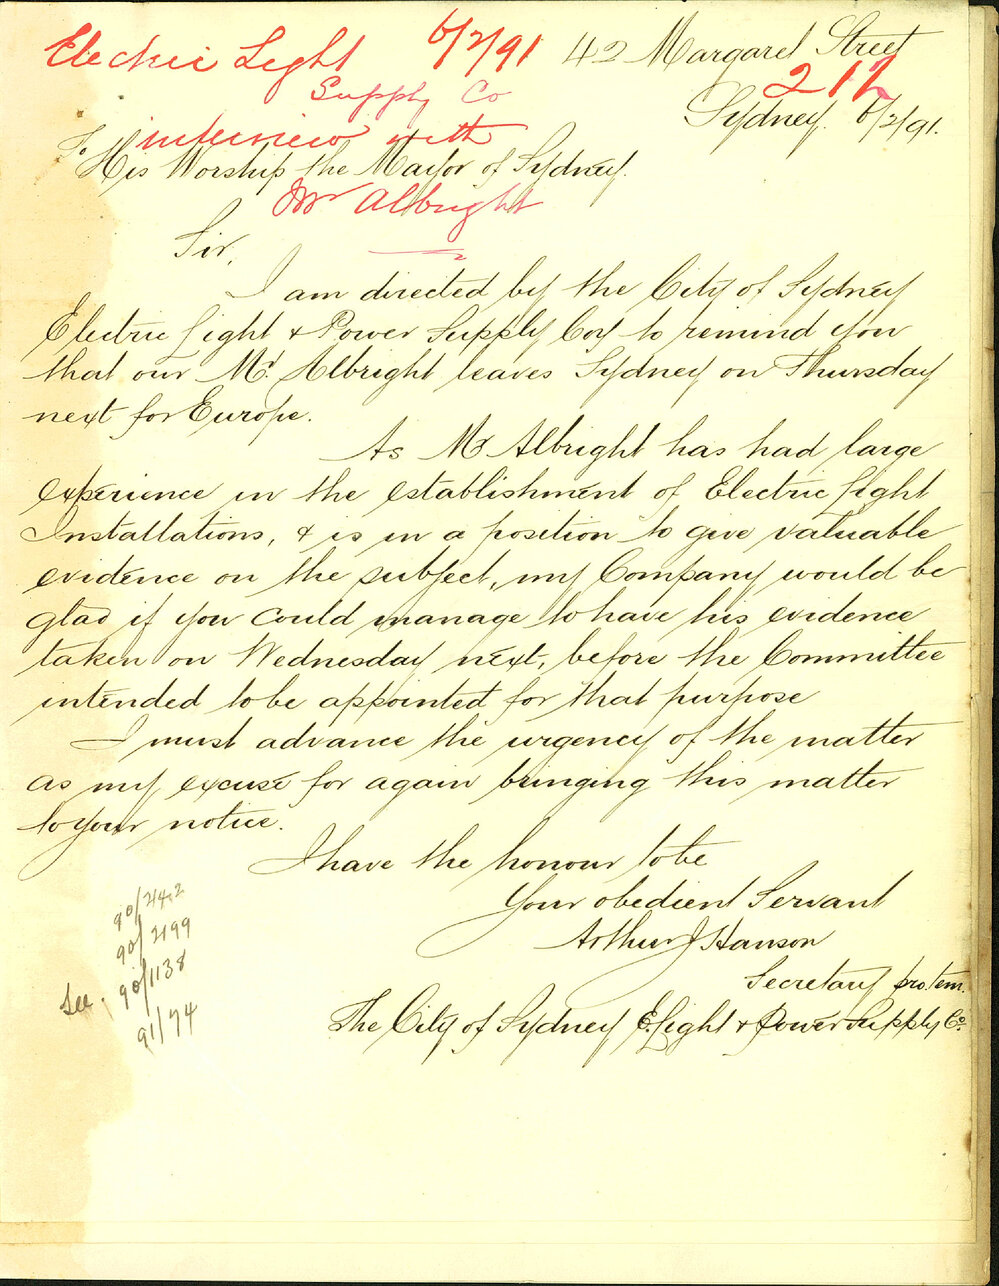 Electric Light 6/2/91
Supply Co
interview with
Mr Albright
212
42 Margaret Street
Sydney. 6/2/91.
To His Worship the Mayor of Sydney.
Sir,
I am directed by the City of Sydney
Electric Light & Power Supply Coy to remind you
that our Mr. Albright leaves Sydney on Thursday
next for Europe.
As Mr Albright has had large
experience in the establishment of Electric Light
Installations, & is in a position to give valuable
evidence on the subject, my Company would be
glad if you could manage to have his evidence
taken on Wednesday next, before the Committee
intended to be appointed for that purpose
I must advance the urgency of the matter
as my excuse for again bringing this matter
to your notice.
I have the honour to be
Your obedient Servant
Arthur J Hanson
Secretary pro. tem.
The City of Sydney E. Light & Power Supply Co.
90/242
90/2199
See. 90/1138
91/74